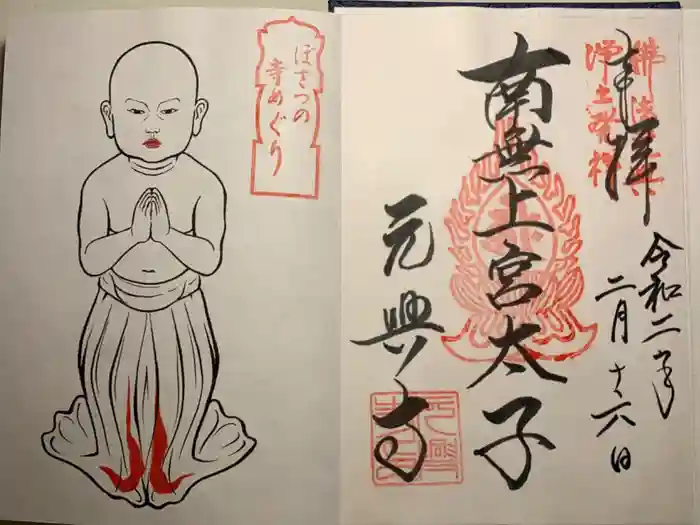 奉拝
令和二年
二月十六日
南無上宮太子
元興寺
ぼさつの
寺めぐり